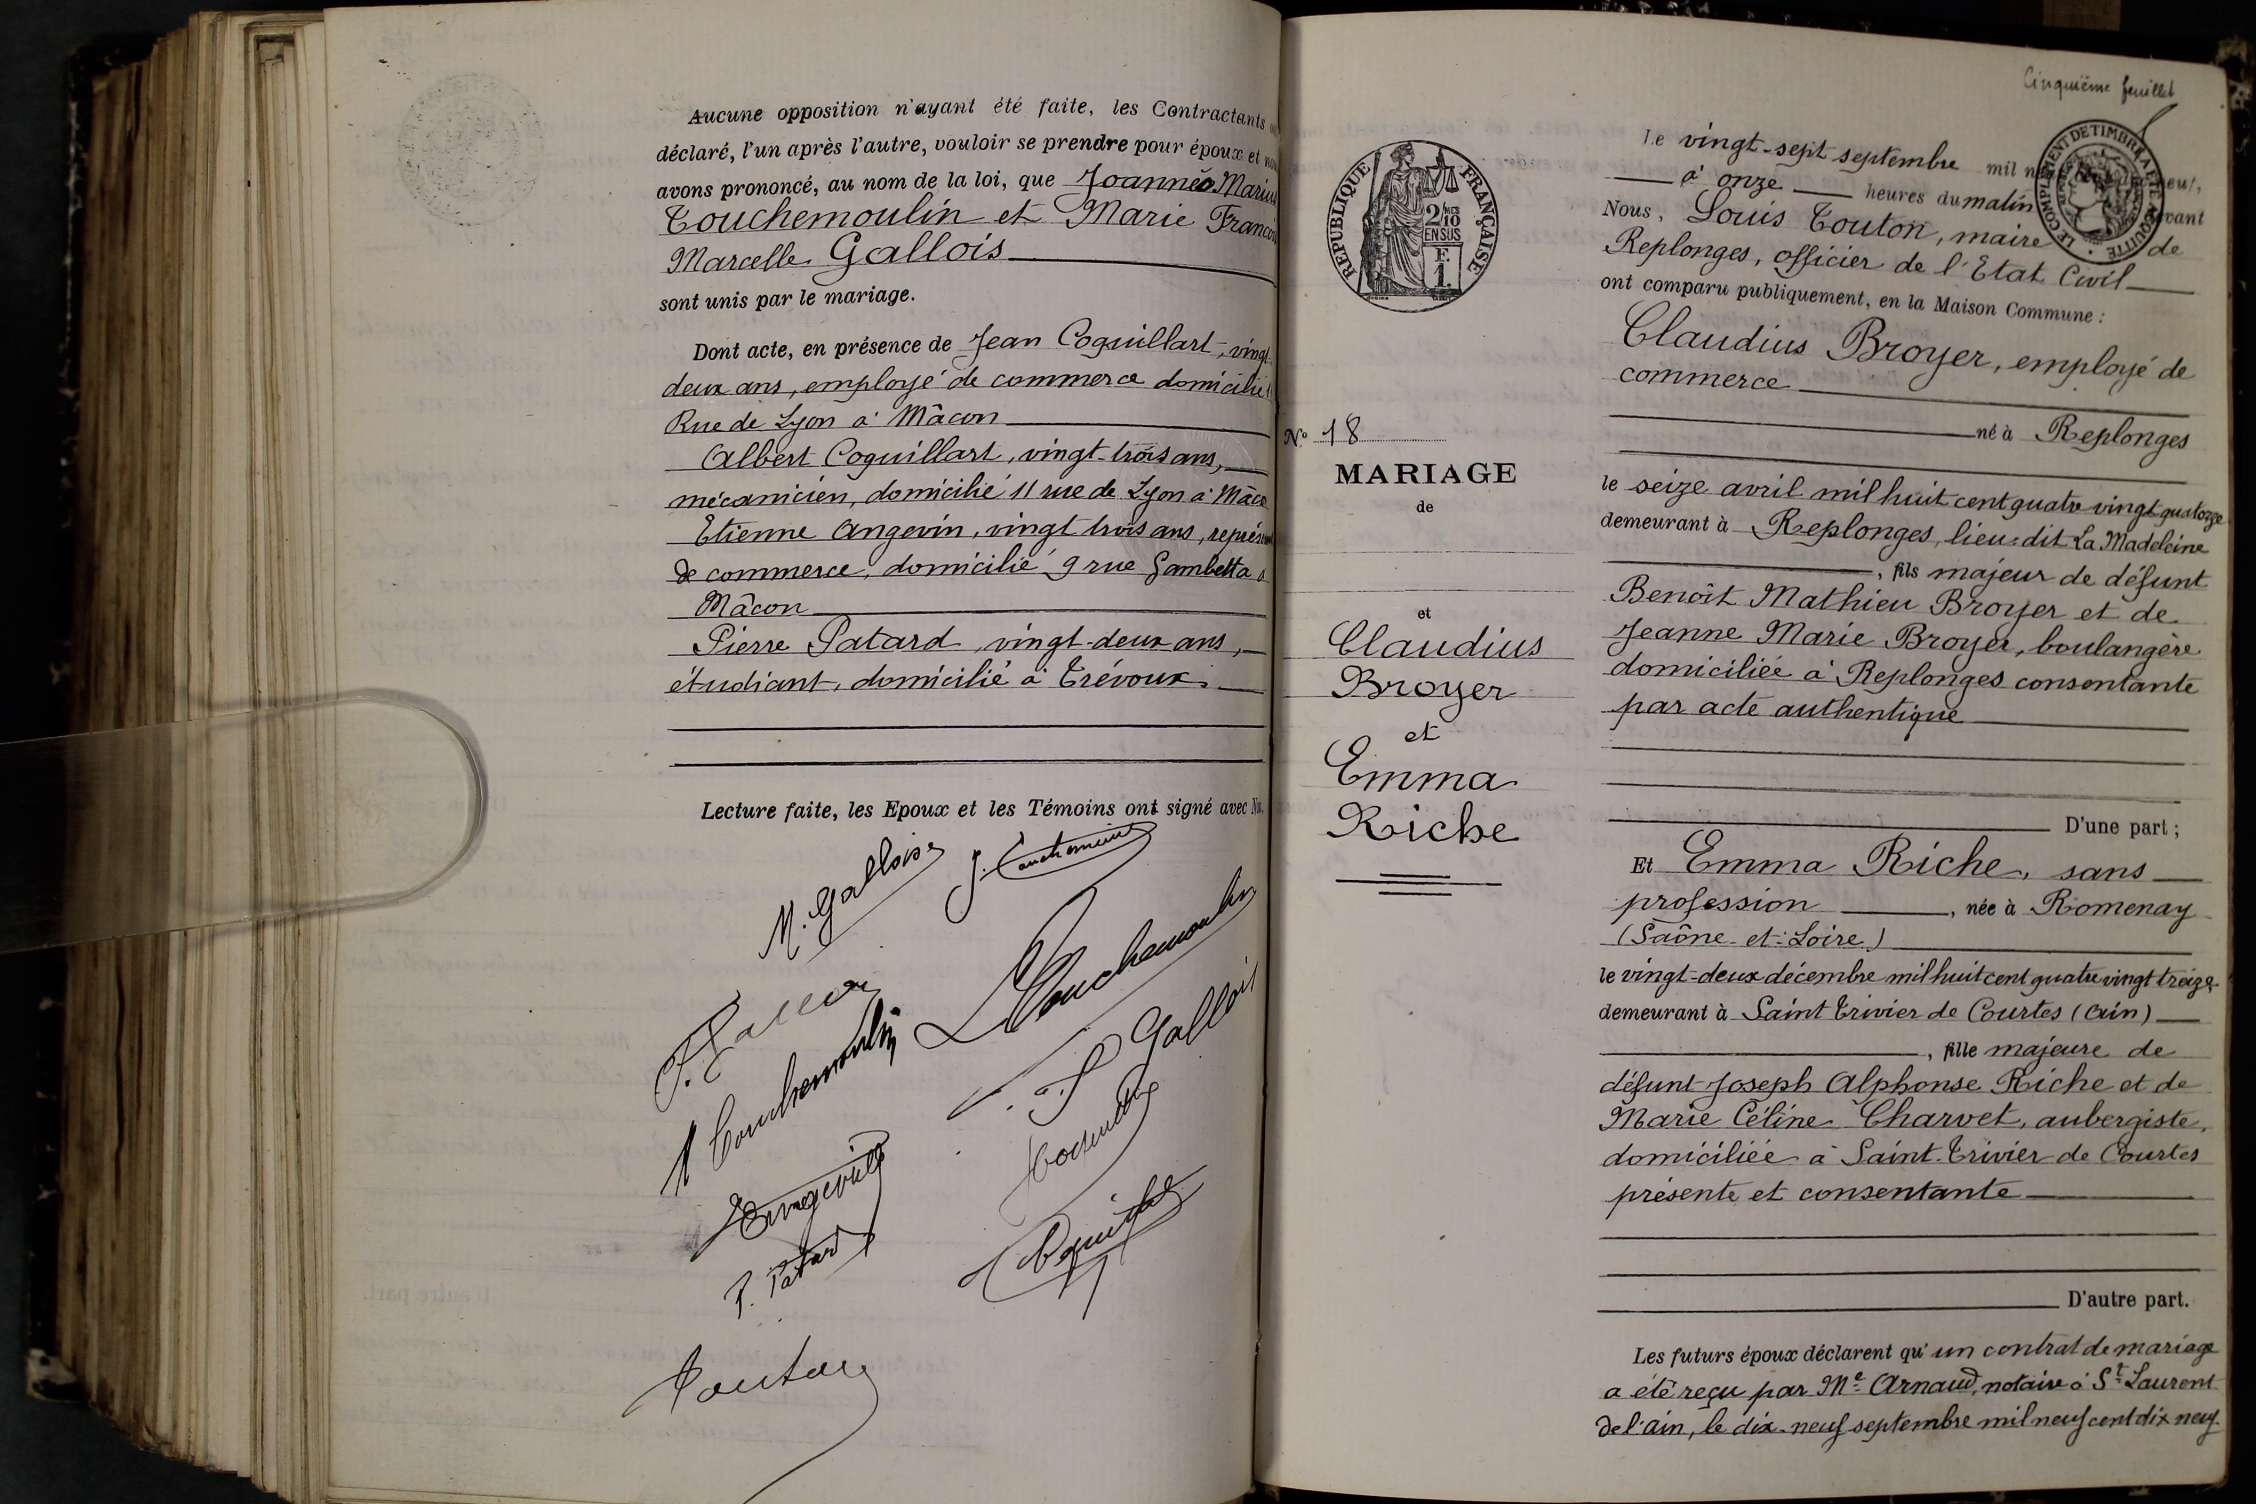 Aucune opposition n'ayant été faite, les Contractants
déclaré, l'un après l'autre, vouloir se prendre pour époux et
avons prononcé, au nom de la loi, que Joannès Marius
Touchemoulin et Marie
Marcelle Gallois
sont unis par le mariage.
Dont acte, en présence de Jean Coquillart, vingt-
deux ans, employé de commerce domicilié
Rue de Lyon à Mâcon
Albert Coquillart, vingt-trois ans,
mécanicien, domicilié 11 rue de Lyon à
Etienne Angevin, vingt trois ans,
de commerce, domicilié 9 rue Gambetta à
Mâcon
Pierre Patard, vingt-deux ans,
étudiant, domicilié à Trévoux.
Lecture faite, les Epoux et les Témoins ont signé avec
M. Gallois
J. Touchemoulin
Touchemoulin
Gallois
Touchemoulin
P. Patard
Touton
Cinquième feuillet
RÉPUBLIQUE FRANÇAISE
2/10
EN SUS
F.
1.
LE COMPLÉMENT DE TIMBRE A ÉTÉ ACQUITTÉ
Le vingt-sept septembre mil
à onze heures du matin
Nous, Louis Touton, maire de
Replonges, officier de l'Etat Civil
ont comparu publiquement, en la Maison Commune :
Claudius Broyer, employé de
commerce
né à Replonges
le seize avril mil huit cent quatre vingt quatorze
demeurant à Replonges, lieu-dit La Madeleine
, fils majeur de défunt
Benoît Mathieu Broyer et de
Jeanne Marie Broyer, boulangère
domiciliée à Replonges consentante
par acte authentique
D'une part ;
N° 18
MARIAGE
de
et
Claudius
Broyer
et
Emma
Riche
Et Emma Riche, sans
profession, née à Romenay
(Saône-et-Loire)
le vingt-deux décembre mil huit cent quatre vingt treize
demeurant à Saint Trivier de Courtes (Ain)
, fille majeure de
défunt Joseph Alphonse Riche et de
Marie Céline Charvet, aubergiste,
domiciliée à Saint-Trivier de Courtes
présente et consentante
D'autre part.
Les futurs époux déclarent qu'un contrat de mariage
a été reçu par Me Arnaud, notaire à St Laurent
de l'Ain, le dix-neuf septembre mil neuf cent dix neuf